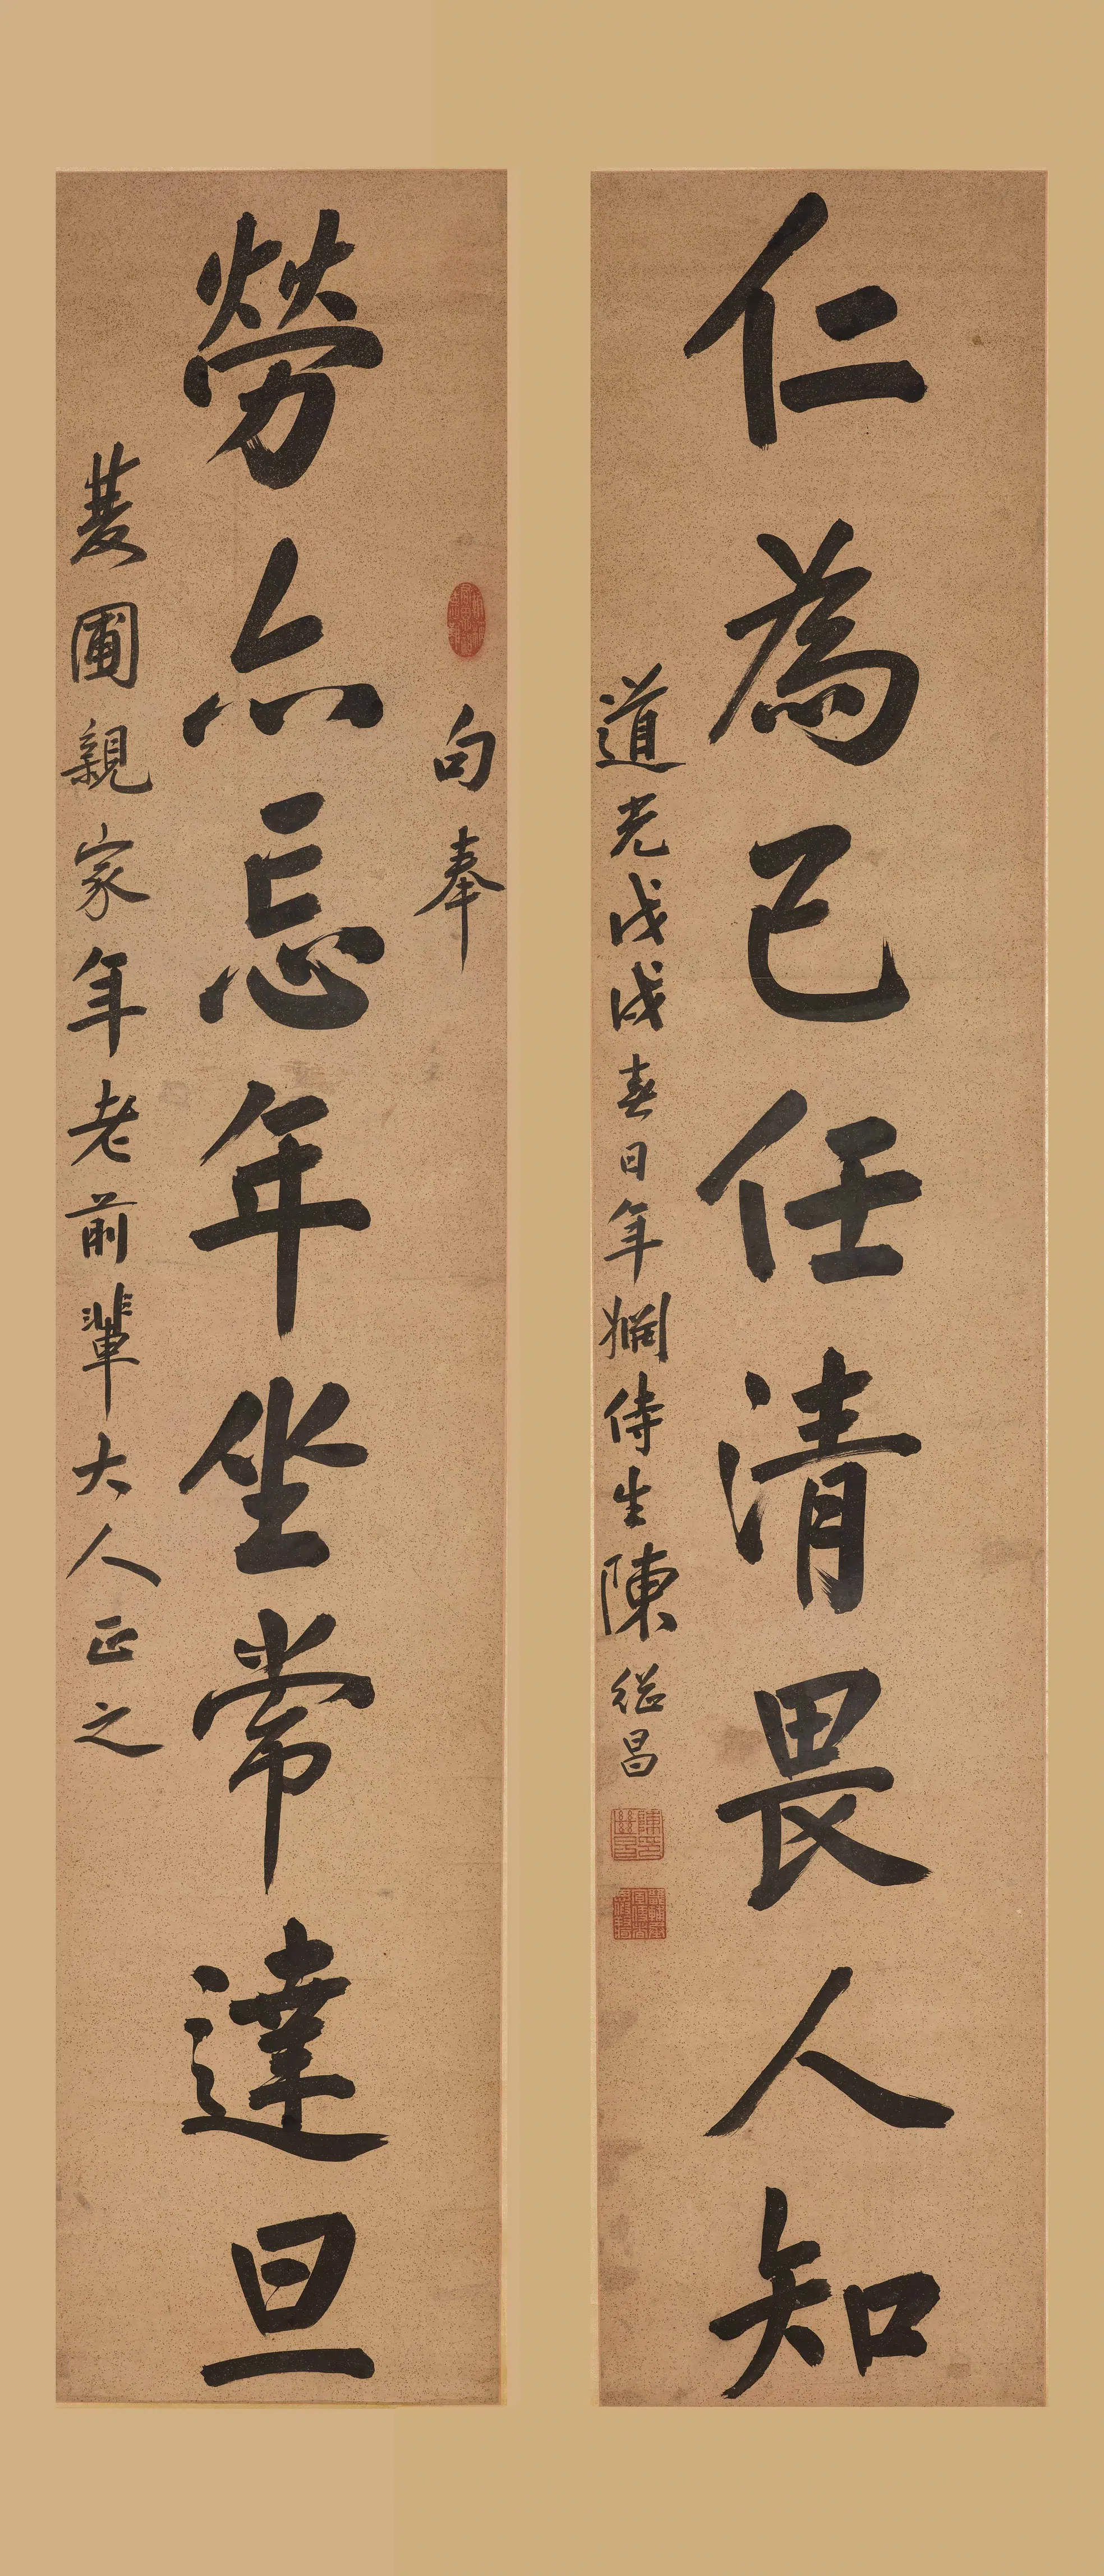 仁為己任清畏人知
道光戊戌春日年婣侍生陳繼昌
陳繼昌印
句奉
勞亦忘年坐常達旦
菱圃親家年老前輩大人正之